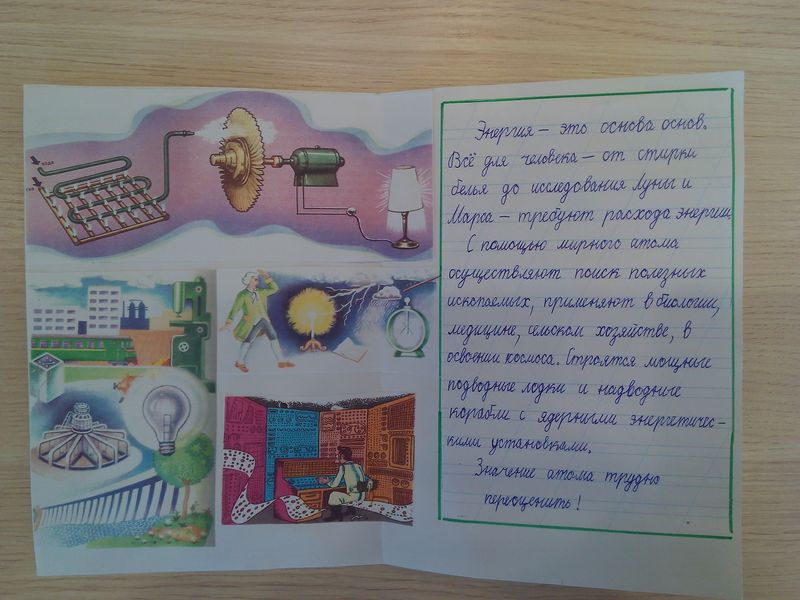 вода
газ
Энергия – это основа основ.
Всё для человека – от стирки
белья до исследования Луны и
Марса – требуют расхода энергии.
С помощью мирного атома
осуществляют поиск полезных
ископаемых, применяют в биологии,
медицине, сельском хозяйстве, в
освоении космоса. Строятся мощные
подводные лодки и надводные
корабли с ядерными энергетичес-
кими установками.
Значение атома трудно
переоценить!